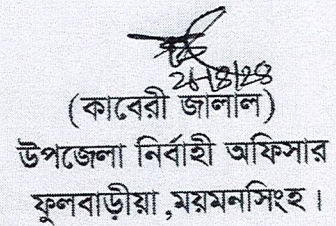 (কাবেরী জালাল)
উপজেলা নির্বাহী অফিসার
ফুলবাড়ীয়া ,ময়মনসিংহ।